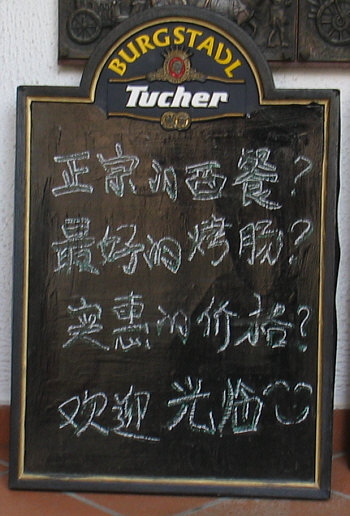 BURGSTADL
Tucher
正宗的西餐?
最好的烤肠?
实惠的价格?
欢迎光临